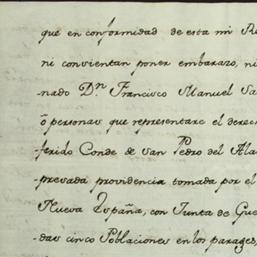 que en conformidad de esta mi Re
ni consientan poner embarazo, ni
nado Dn. Francisco Manuel Sa
ò personas que representare el derec
ferido Conde de San Pedro del Ala
presada providencia tomada por el
Nueva España, con Junta de Gue
das cinco Poblaciones en los parages,